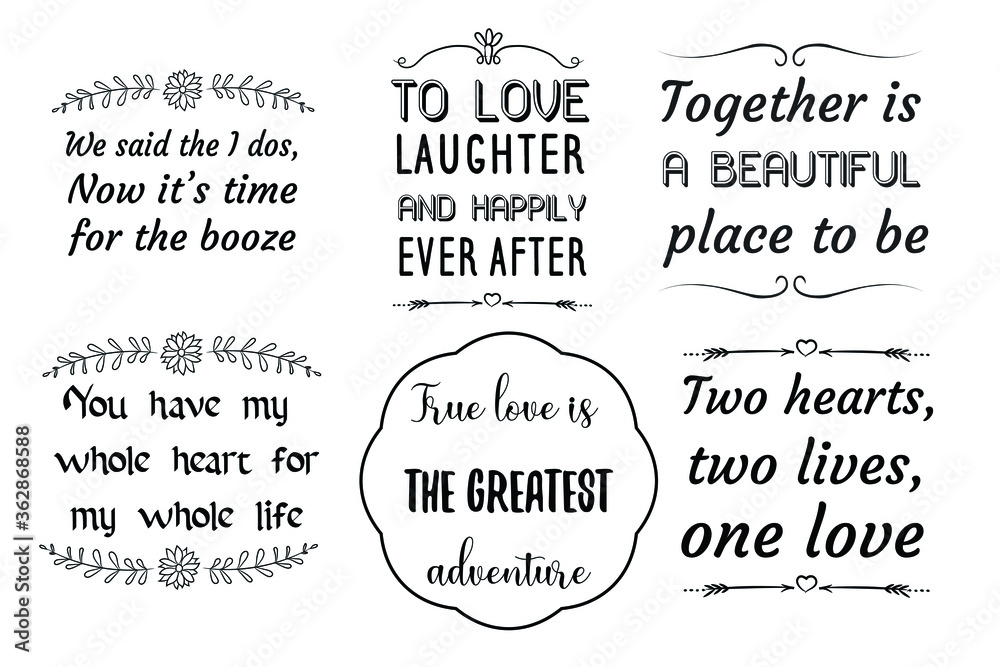 We said the I dos,
Now it's time
for the booze
TO LOVE
LAUGHTER
AND HAPPILY
EVER AFTER
Together is
A BEAUTIFUL
place to be
You have my
whole heart for
my whole life
True love is
THE GREATEST
adventure
Two hearts,
two lives,
one love
Adobe Stock | #362868588